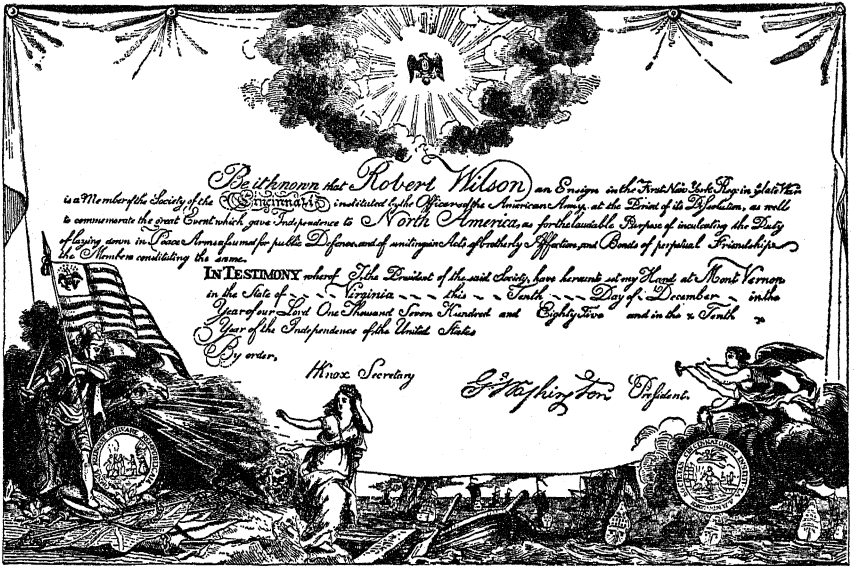 Be it known that Robert Wilson an Ensign in the First New York Reg. in ye late War
is a Member of the Society of the Cincinnati instituted by the Officers of the American Army, at the Period of its Dissolution, as well
to commemorate the great Event which gave Independence to North America, as for the laudable Purpose of inculcating the Duty
of laying down in Peace Arms assumed for public Defence, and of uniting in Acts of brotherly Affection, and Bonds of perpetual Friendship
the Members constituting the same.
IN TESTIMONY whereof I, the President of the said Society, have hereunto set my Hand at Mont Vernon
in the State of Virginia this Tenth Day of December in the
Year of our Lord One Thousand Seven Hundred and Eighty Five and in the Tenth
Year of the Independence of the United States
By order,
HKnox Secretary
G. Washington President.